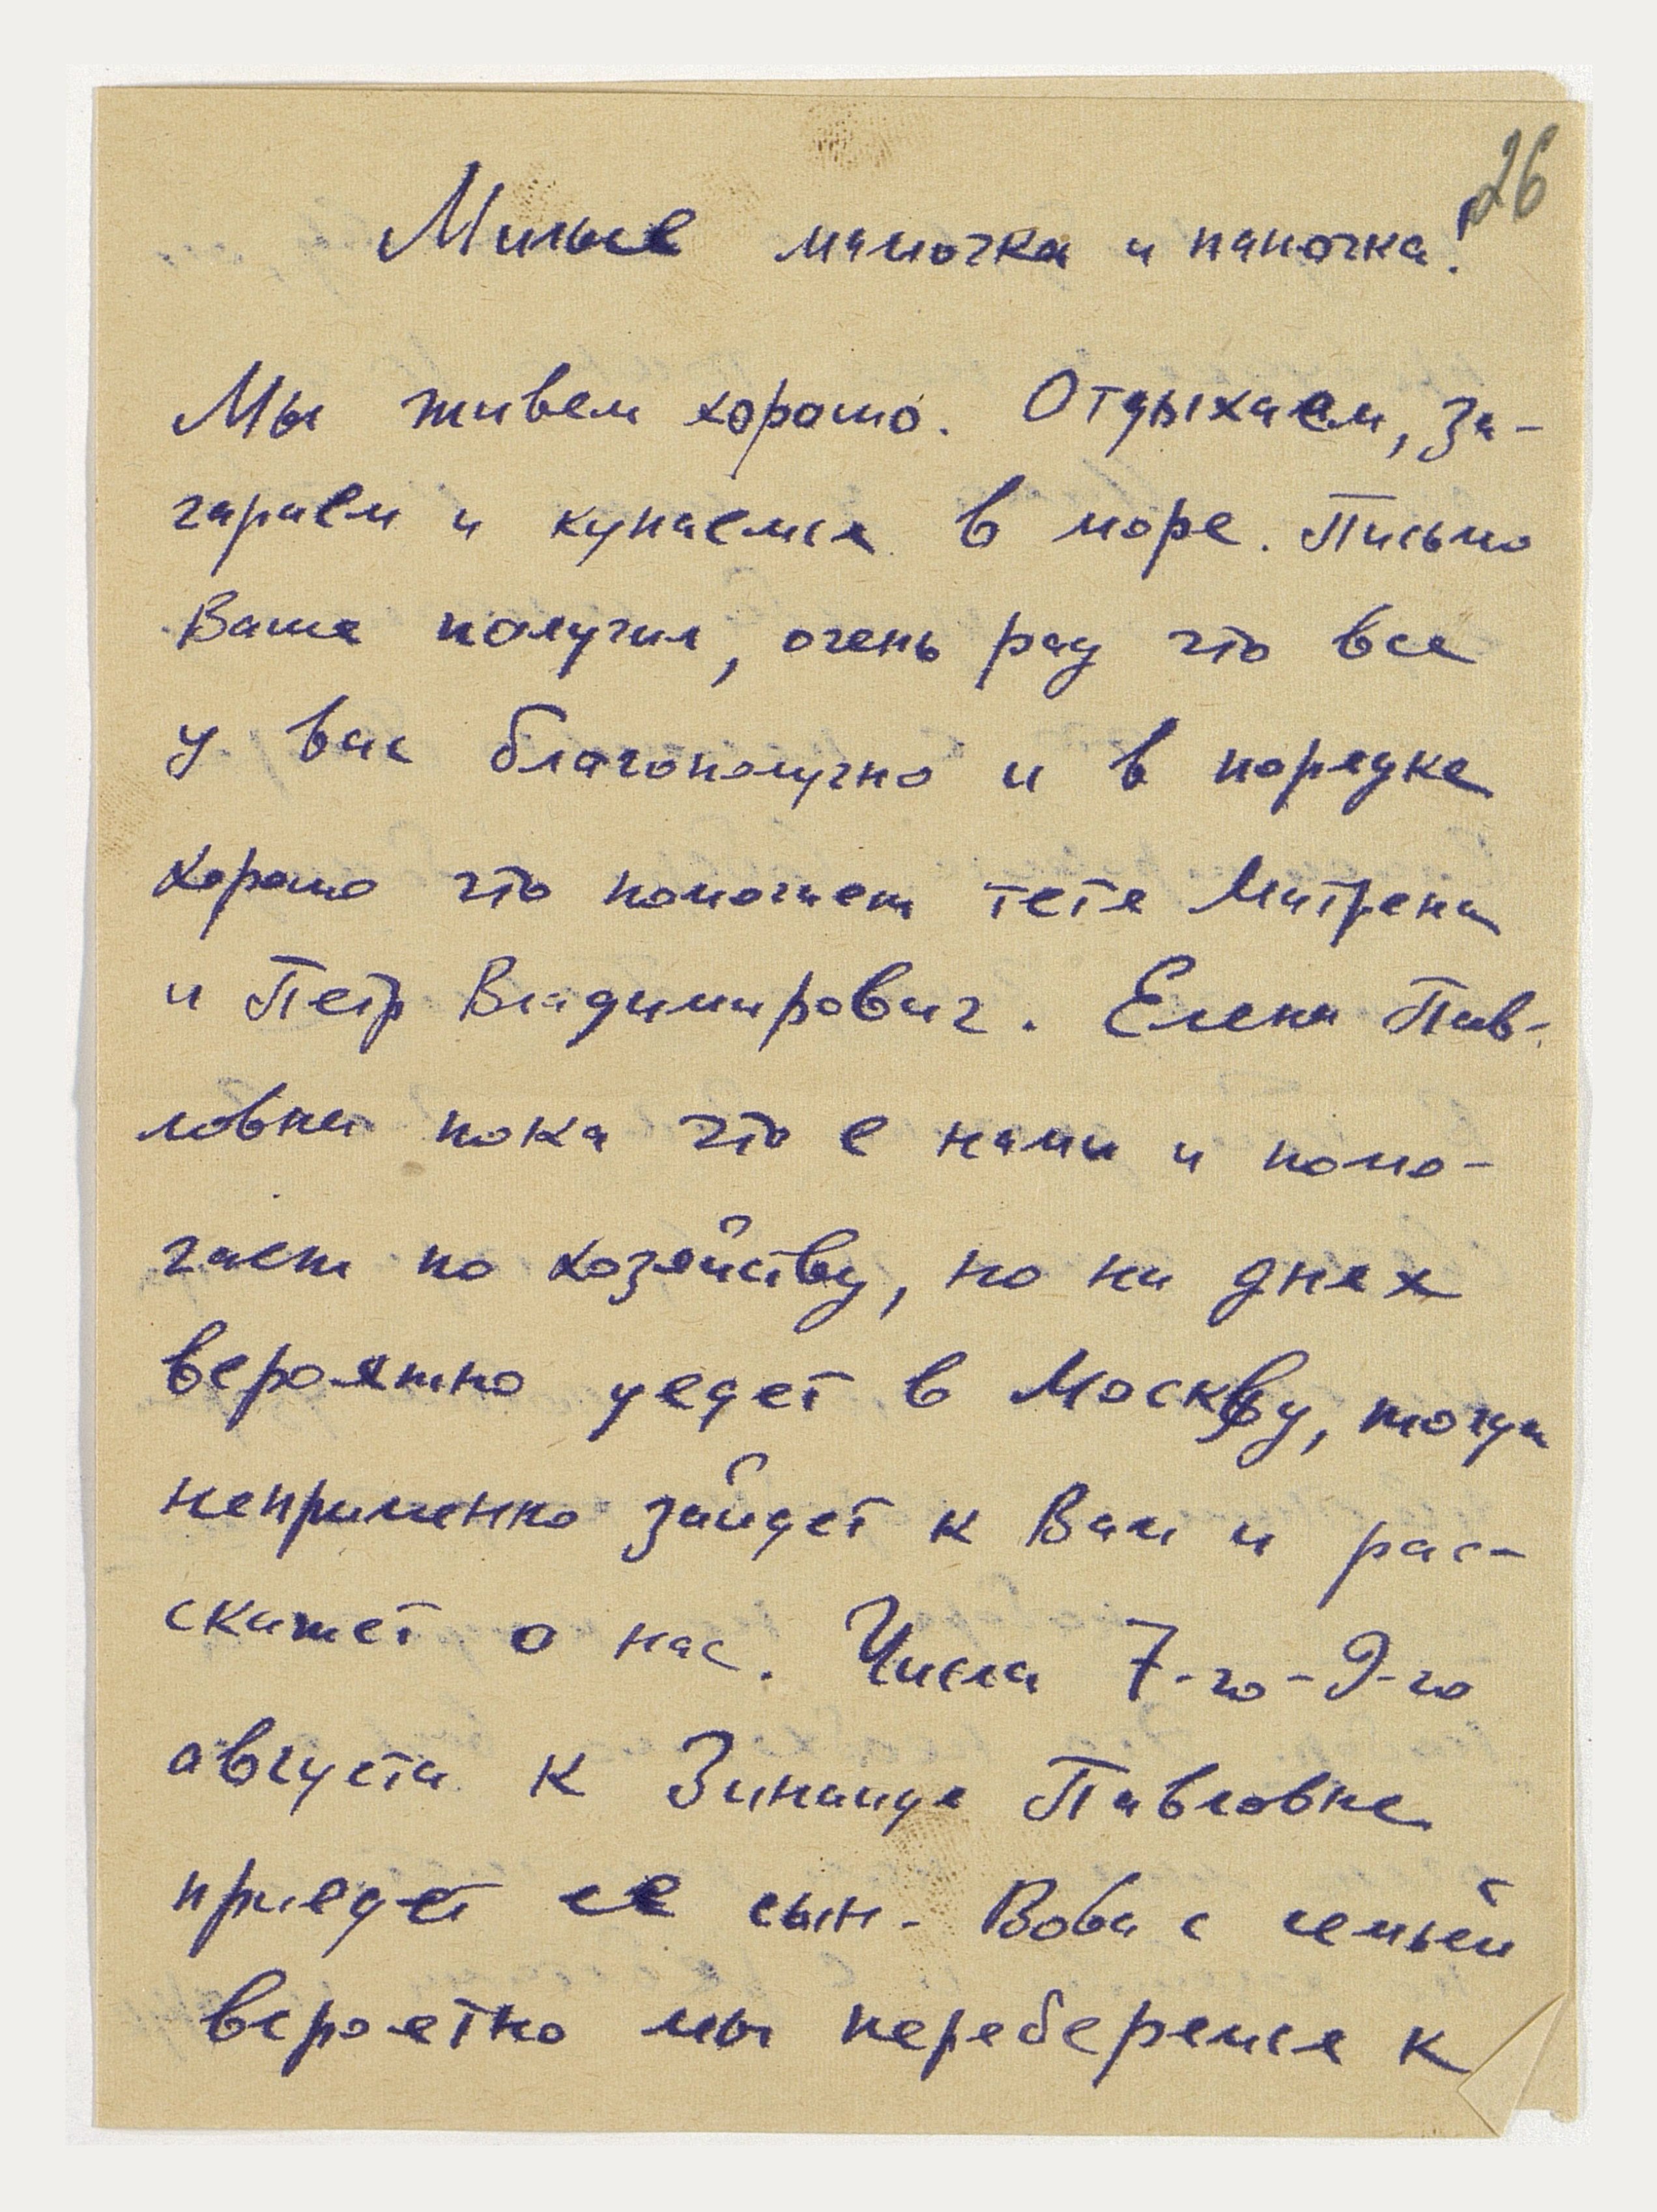 26
Милые мамочка и папочка!
Мы живем хорошо. Отдыхаем, за-
гараем и купаемся в море. Письмо
Ваше получил, очень рад что все
у вас благополучно и в порядке
хорошо что помогает тетя Матрена
и Петр Владимирович. Елена Пав-
ловна пока что с нами и помо-
гает по хозяйству, но на днях
вероятно уедет в Москву, тогда
неприменно зайдет к Вам и рас-
скажет о нас. Числа 7-го-9-го
августа к Зинаиде Павловне
приедет ее сын - Вова с семьей
вероятно мы переберемся к